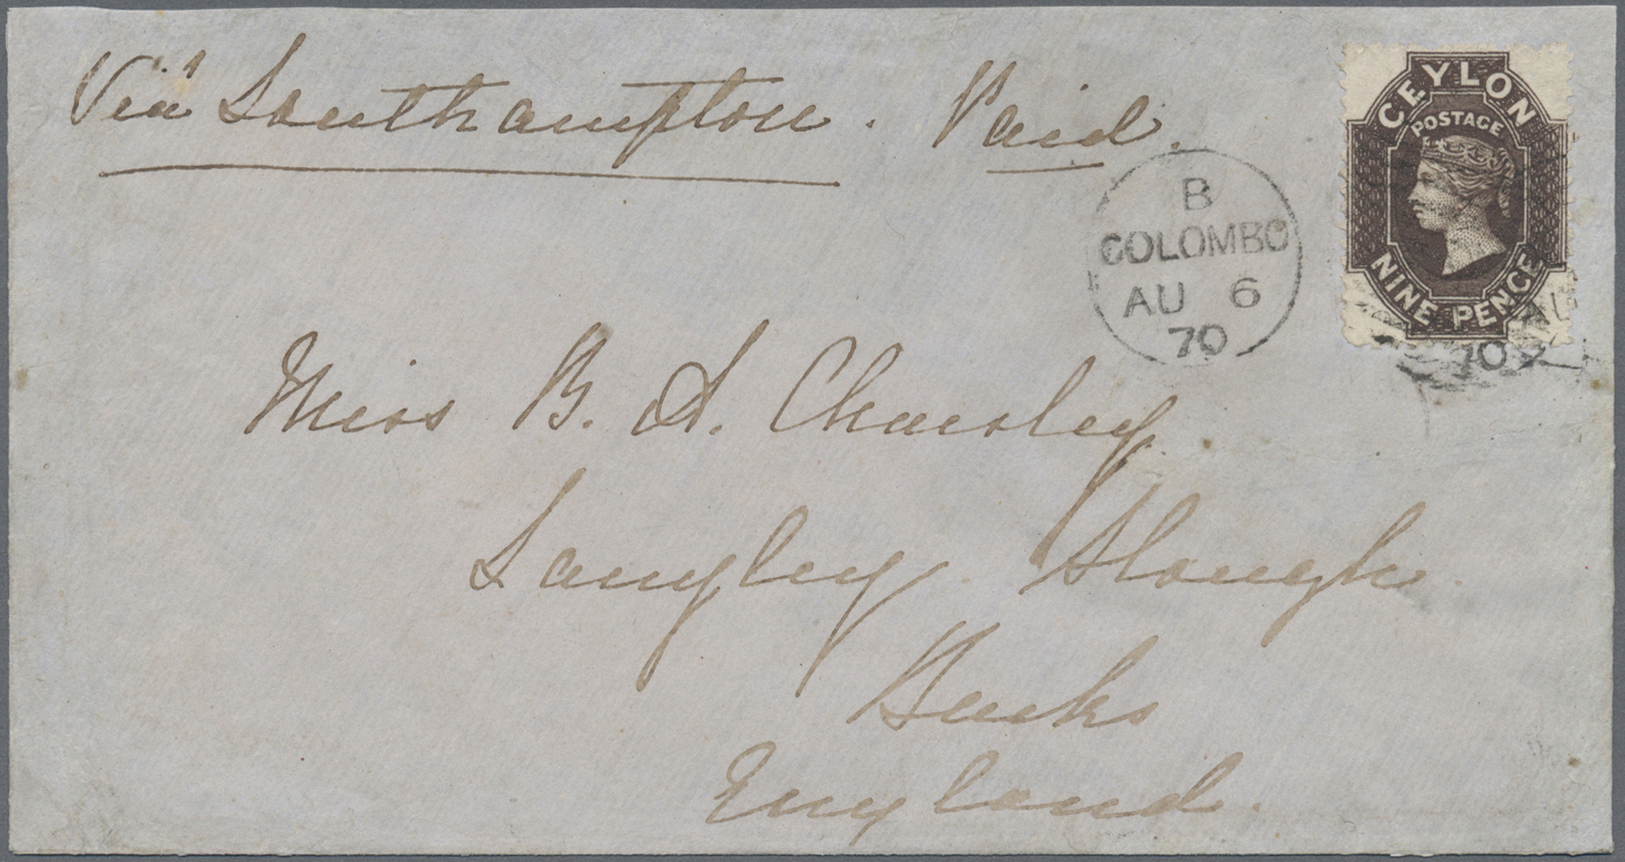 Via Southampton. Paid.
CEYLON
POSTAGE
NINE PENCE
B
COLOMBO
AU 6
70
AU
70
Miss B. A. Charsley
Langley Slough.
Bucks
England.